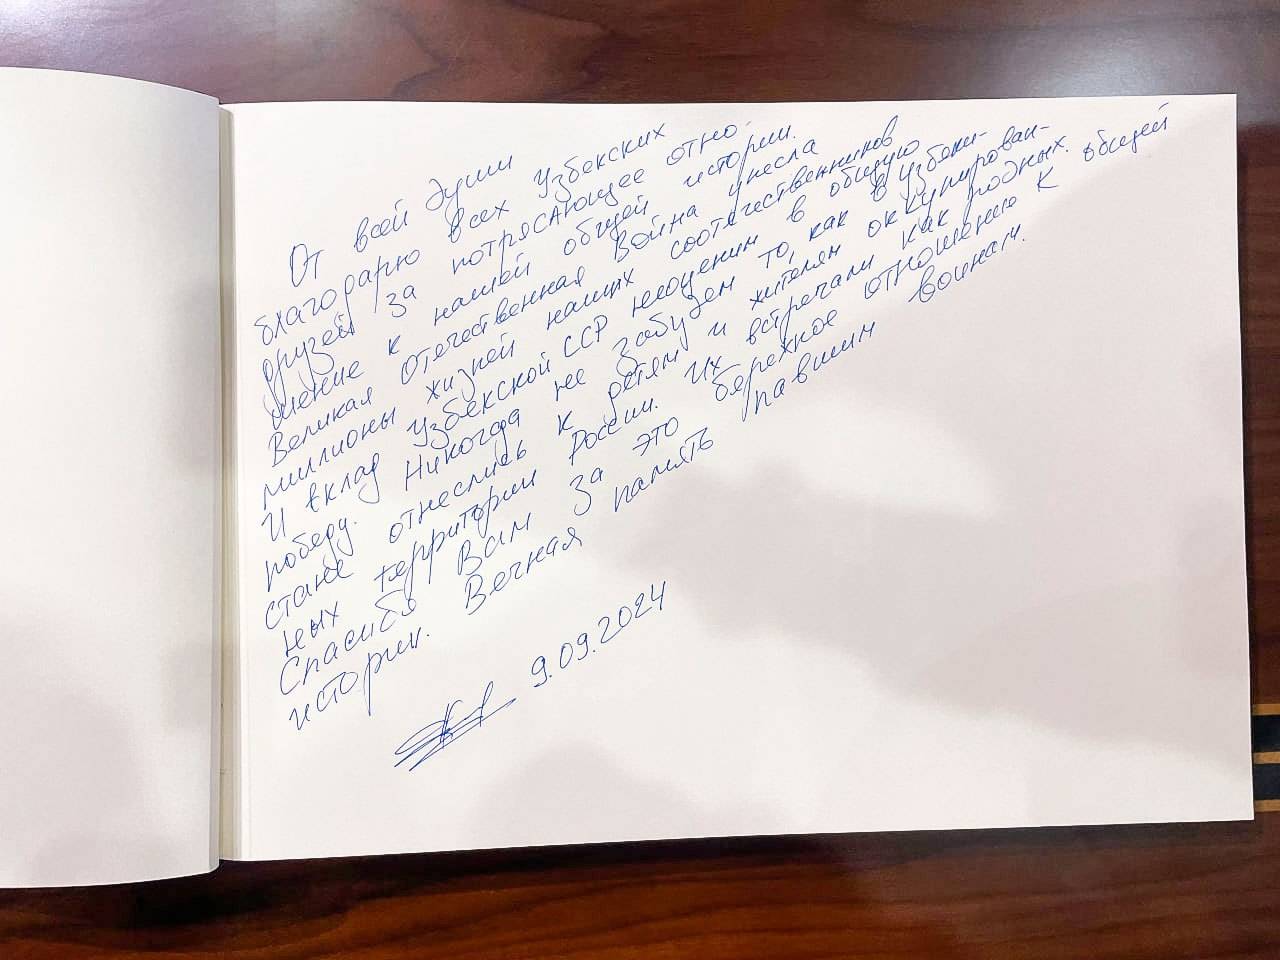 От всей души
благодарю всех Узбекских
друзей за потрясающее отно-
шение к нашей общей истории.
Великая Отечественная Война унесла
миллионы жизней наших соотечественников
И вклад Узбекской ССР неоценим в общую
победу. Никогда не забудем то, как в Узбеки-
стане отнеслись к детям и жителям оккупирован-
ных территорий России. Их встречали как родных.
Спасибо Вам за это бережное отношение к общей
истории. Вечная память павшим воинам.
9.09.2024